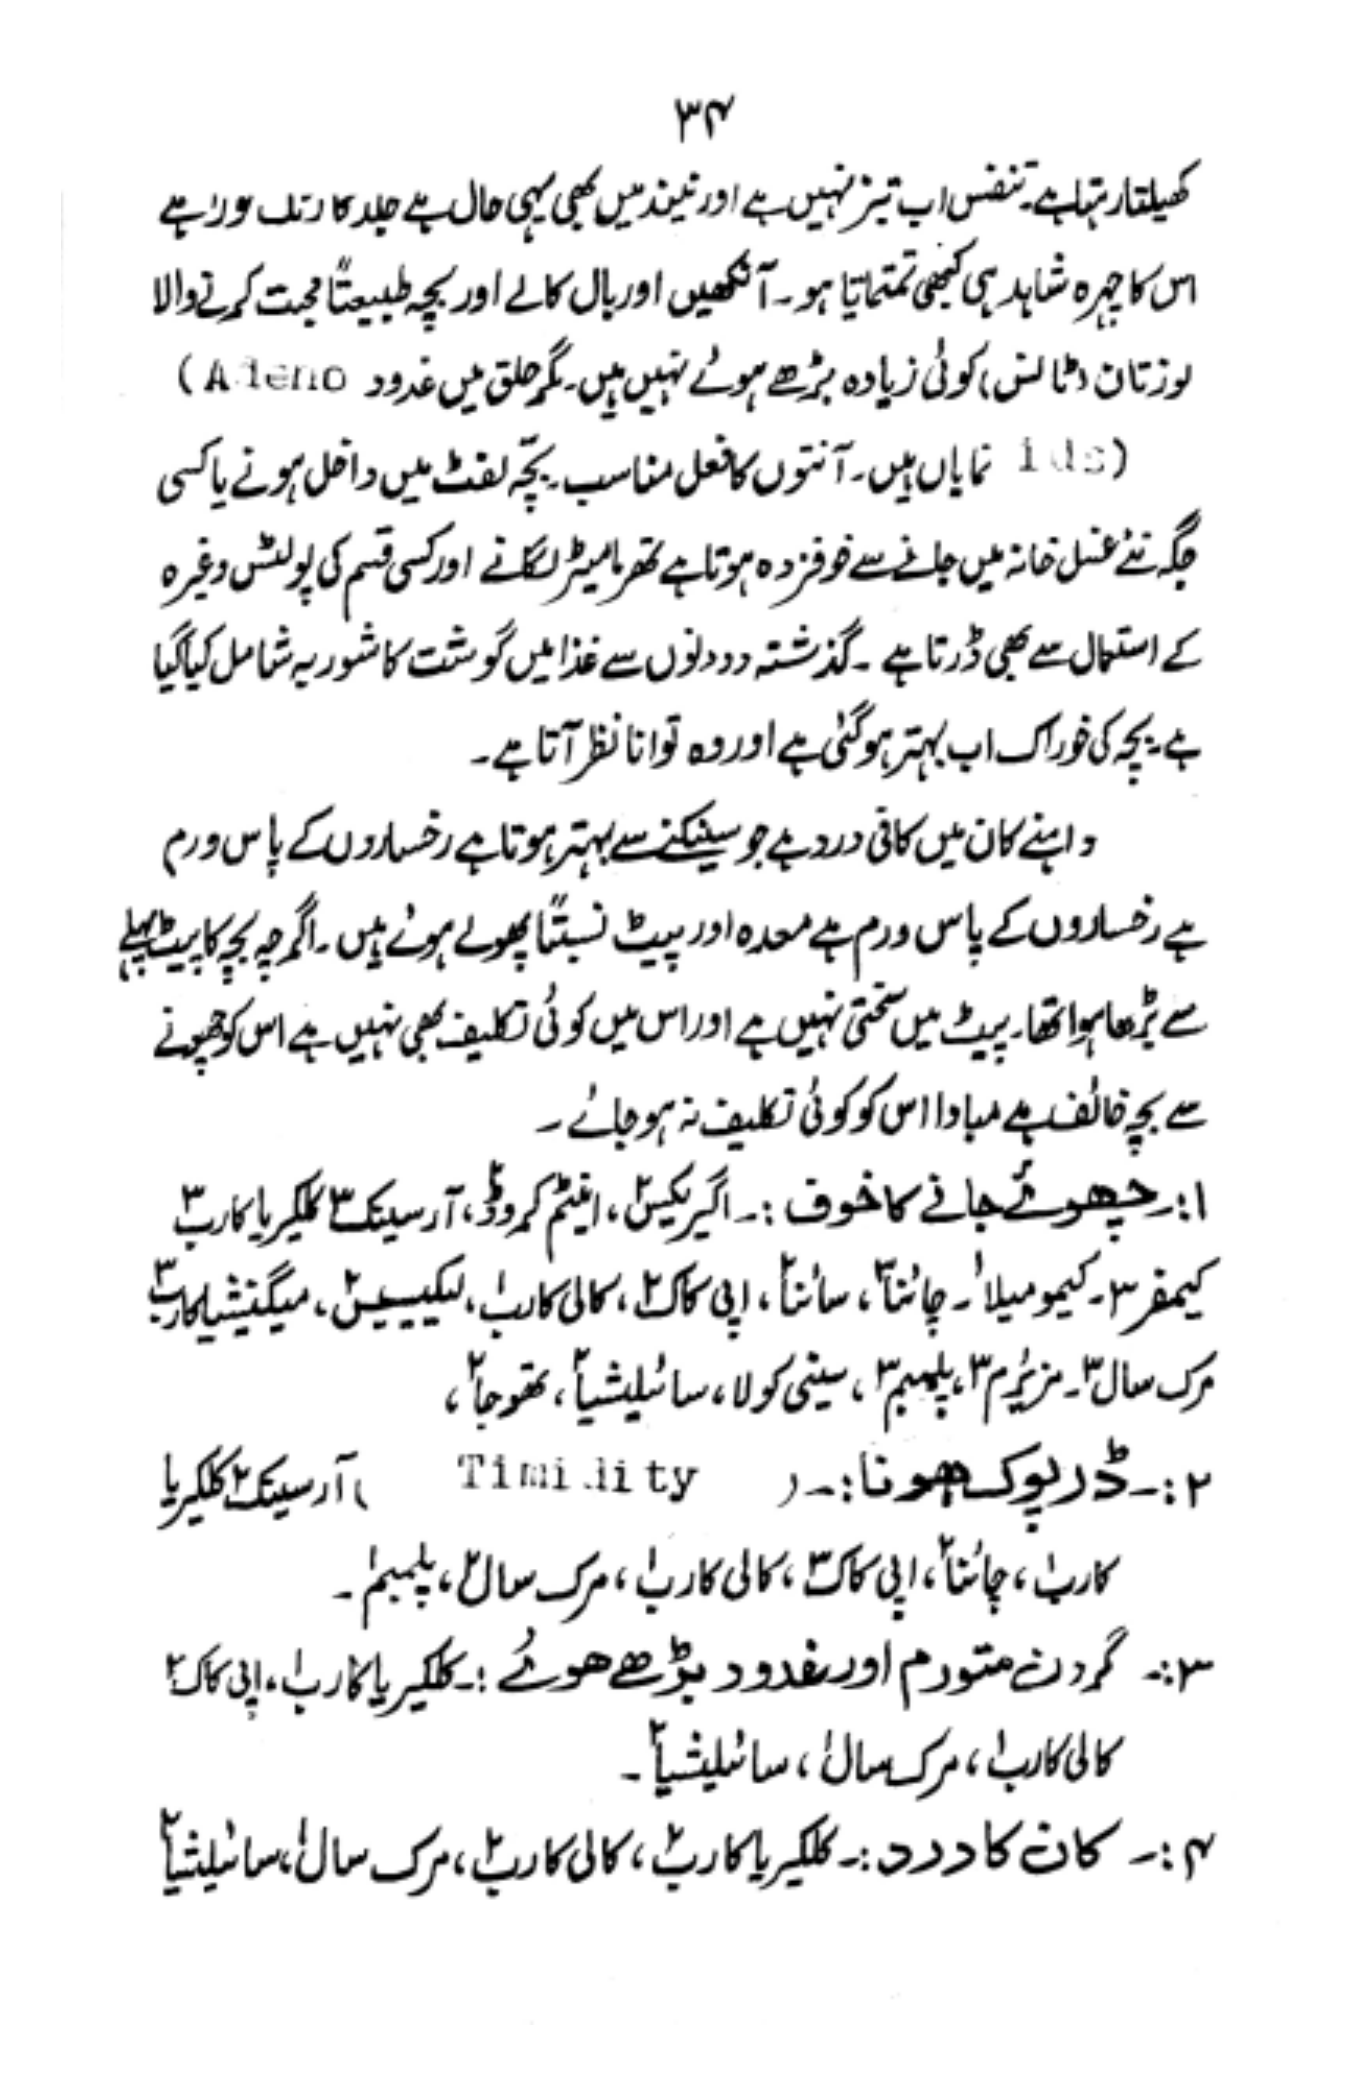 ۳۴
کھیلتا رہتا ہے۔ تنفس اب تیز نہیں ہے اور نیند میں بھی یہی حال ہے جلد کا رنگ بورا ہے
اس کا چہرہ شاید ہی کبھی تمتماتا ہو۔ آنکھیں اور بال کالے اور بچہ طبیعتاً محبت کرنے والا
لوزتان (ٹالس) کوئی زیادہ بڑھے ہوئے نہیں ہیں۔ مگر حلق میں غدود (Adeno
ids) نمایاں ہیں۔ آنتوں کا فعل مناسب۔ بچّہ لفٹ میں داخل ہونے یا کسی
جگہ نئے غسل خانہ میں جانے سے خوفزدہ ہوتا ہے تھرمامیٹر لگانے اور کسی قسم کی پولٹس وغیرہ
کے استعمال سے بھی ڈرتا ہے۔ گذشتہ دو دنوں سے غذا میں گوشت کا شوربہ شامل کیا گیا
ہے۔ بچہ کی خوراک اب بہتر ہو گئی ہے اور وہ توانا نظر آتا ہے۔
داہنے کان میں کافی درد ہے جو سینکنے سے بہتر ہوتا ہے رخساروں کے پاس ورم
ہے رخساروں کے پاس ورم ہے معدہ اور پیٹ نسبتاً پھولے ہوئے ہیں۔ اگرچہ بچے کا پیٹ پہلے
سے بڑھا ہوا تھا۔ پیٹ میں سختی نہیں ہے اور اس میں کوئی تکلیف بھی نہیں ہے اس کو چھونے
سے بچہ خائف ہے مبادا اس کو کوئی تکلیف نہ ہو جائے۔
۱:۔ چھوئے جانے کا خوف:۔ اگیریکس۲، اینٹم کروڈ۲، آرسینک۳ کلکیریا کارب۳
کیمفر۳۔ کیمومیلا۱۔ چائنا۳، سائنا۲، اپی کاک۲، کالی کارب۱، لیکیسیس۲، میگنیشیا کارب۳
مرک سال۳۔ مزیرم۳، پلمبم۳، سینی کولا، سائلیشیا۲، تھوجا۲،
۲:۔ ڈرپوک ہونا:۔ (Timidity) آرسینک۲ کلکیریا
کارب۱، چائنا۲، اپی کاک۳، کالی کارب۱، مرک سال۲، پلمبم۱۔
۳:۔ گردن متورم اور غدود بڑھے ہوئے:۔ کلکیریا کارب۱، اپی کاک۲
کالی کارب۱، مرک سال۱، سائلیشیا۲۔
۴:۔ کان کا درد:۔ کلکیریا کارب۲، کالی کارب۲، مرک سال۱، سائیلیشیا۲